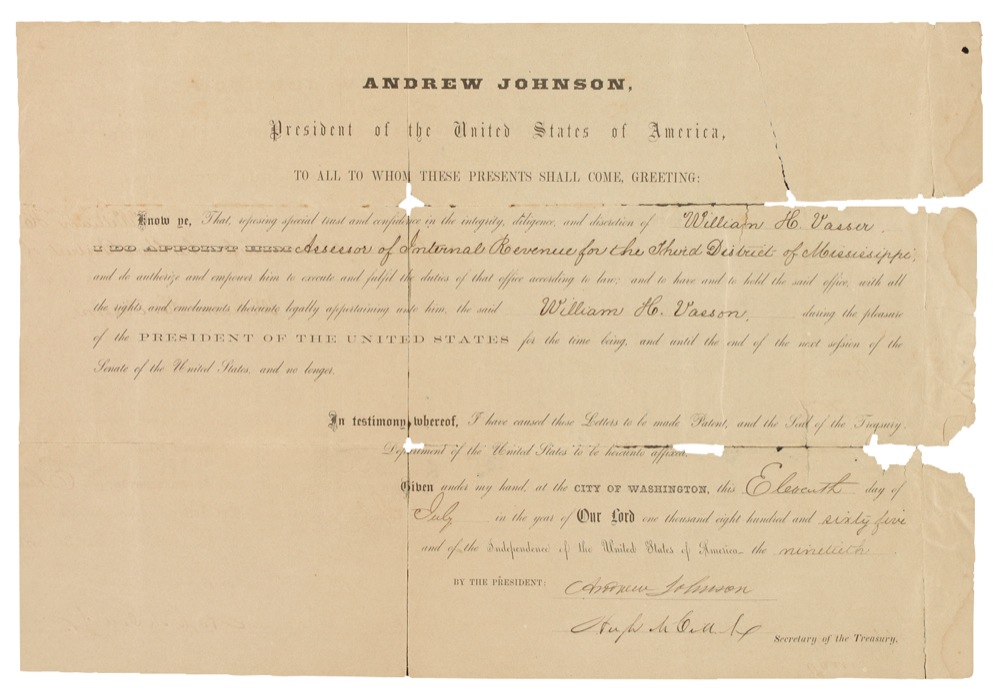 ANDREW JOHNSON,
President of the United States of America,
TO ALL TO WHOM THESE PRESENTS SHALL COME, GREETING:
Know ye, That, reposing special trust and confidence in the integrity, diligence, and discretion of William H. Vasser,
I DO APPOINT HIM Assessor of Internal Revenue for the Third District of Mississippi,
and do authorize and empower him to execute and fulfil the duties of that office according to law; and to have and to hold the said office, with all
the rights and emoluments thereunto legally appertaining unto him, the said William H. Vasson, during the pleasure
of the PRESIDENT OF THE UNITED STATES for the time being, and until the end of the next session of the
Senate of the United States, and no longer.
In testimony whereof, I have caused these Letters to be made Patent, and the Seal of the Treasury
Department of the United States to be hereunto affixed.
Given under my hand, at the CITY OF WASHINGTON, this Eleventh day of
July in the year of Our Lord one thousand eight hundred and sixty five
and of the Independence of the United States of America the ninetieth.
BY THE PRESIDENT: Andrew Johnson
Hugh McCulloch Secretary of the Treasury.